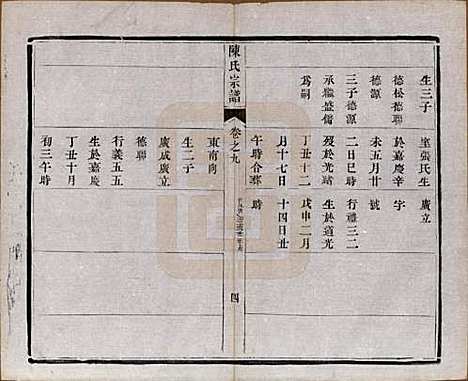 生三子
德松德聯
德源
三子德源
承繼盛傭
爲嗣
室張氏生
於嘉慶辛
未五月廿
二日巳時
歿於光緒
丁丑十二
月十七日
午時合葬
廣立
字
號
行禮三二
生於道光
戊申二月
十四日廿
時
陳氏宗譜
卷之九
四
東南向
生二子
廣成廣立
德聯
行義五五
生於嘉慶
丁丑十月
初三午時